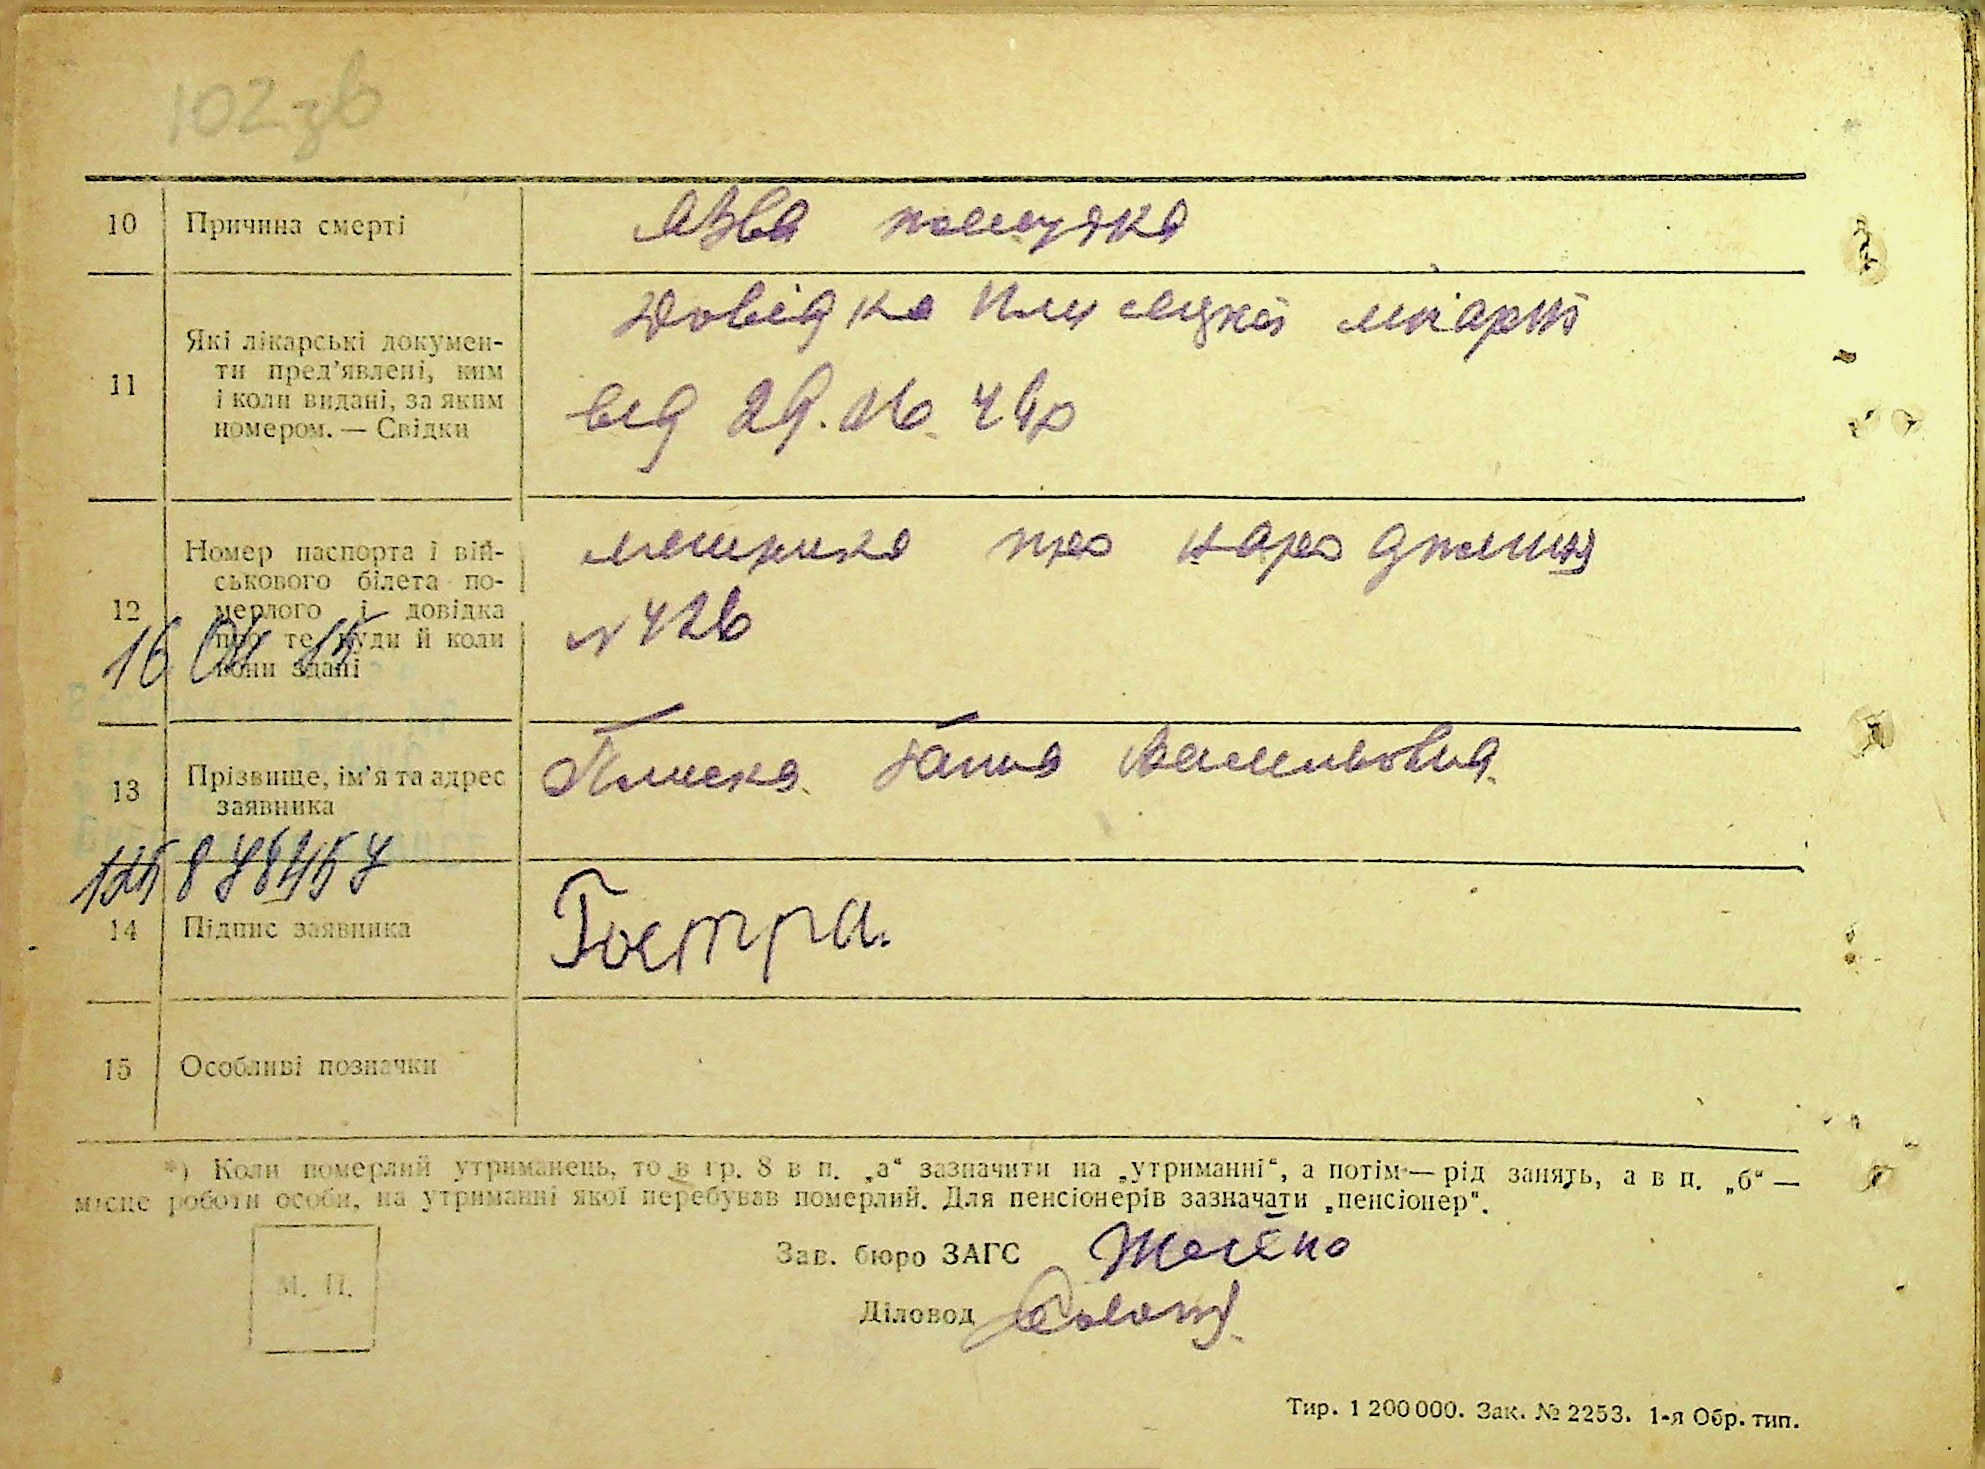 102 зв
10 Причина смерті
язва желудка
11 Які лікарські докумен-
ти пред'явлені, ким
і коли видані, за яким
номером. — Свідки
Довідка лікарні
від
12 Номер паспорта і вій-
ськового білета по-
мерлого і довідка
про те, куди й коли
вони здані
метрика про народження
№ 426
16 04 15
13 Прізвище, ім'я та адрес
заявника
Ганна Васильовна
125 8
14 Підпис заявника
Гостра.
15 Особливі позначки
*) Коли померлий утриманець, то в гр. 8 в п. „а“ зазначити на „утриманні“, а потім — рід занять, а в п. „б“ —
місце роботи особи, на утриманні якої перебував померлий. Для пенсіонерів зазначати „пенсіонер“.
М. П.
Зав. бюро ЗАГС
Діловод
Тир. 1 200 000. Зак. № 2253. 1-я Обр. тип.